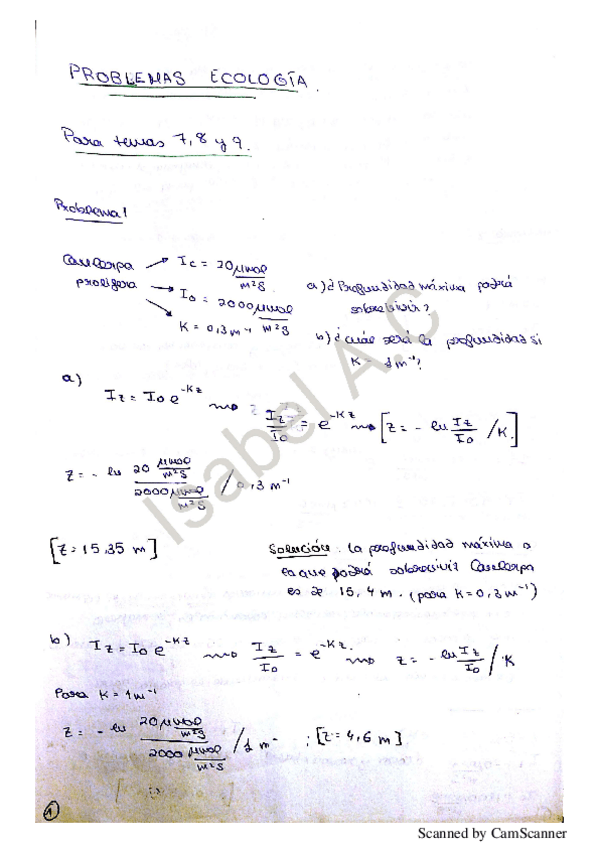 PROBLEMAS ECOLOGÍA.
Para temas 7, 8 y 9.
Problema 1
Caulerpa prolifera → Ic = 20 μmol/m²s
→ I₀ = 2000 μmol/m²s
→ K = 0,3 m⁻¹
a) ¿Profundidad máxima podrá
sobrevivir?
b) ¿cuál será la profundidad si
K = 1 m⁻¹?
a)
Iz = I₀ e^-Kz ⟿ Iz/I₀ = e^-Kz ⟿ [z = - ln Iz/I₀ / K.]
z = - ln 20 μmol/m²s / 2000 μmol/m²s / 0,3 m⁻¹
[z = 15,35 m]
Solución: La profundidad máxima a
la que podrá sobrevivir Caulerpa
es ≈ 15,4 m. (para K = 0,3 m⁻¹)
b) Iz = I₀ e^-Kz ⟿ Iz/I₀ = e^-Kz. ⟿ z = - ln Iz/I₀ / K
Para K = 1 m⁻¹
z = - ln 20 μmol/m²s / 2000 μmol/m²s / 1 m⁻ ; [z = 4,6 m]
1
Isabel A.C
Scanned by CamScanner